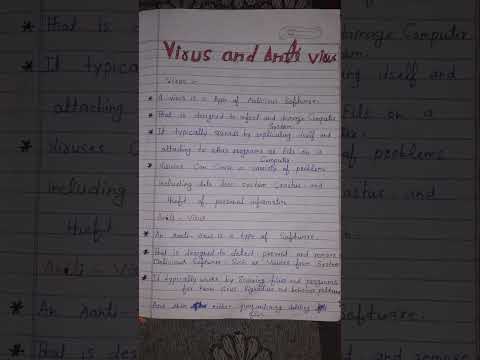 Virus and Anti virus
Virus -
* A virus is a type of Malicious Software.
* That is designed to infect and damage Computer
System
* It typically spreads by replicating itself and
attaching to other programs or Fils on a
Computer
* Viruses Can Cause a variety of problems
including data loss system Crastus and
theft of personal information
Anti - Virus
* An Anti-virus is a type of Software.
* That is designed to detect prevent and remove
Malicious Software Such as Viruses from System
* It typically works by Scanning files and programs
for known virus Signatures and behaviour patterns
And then either deleting